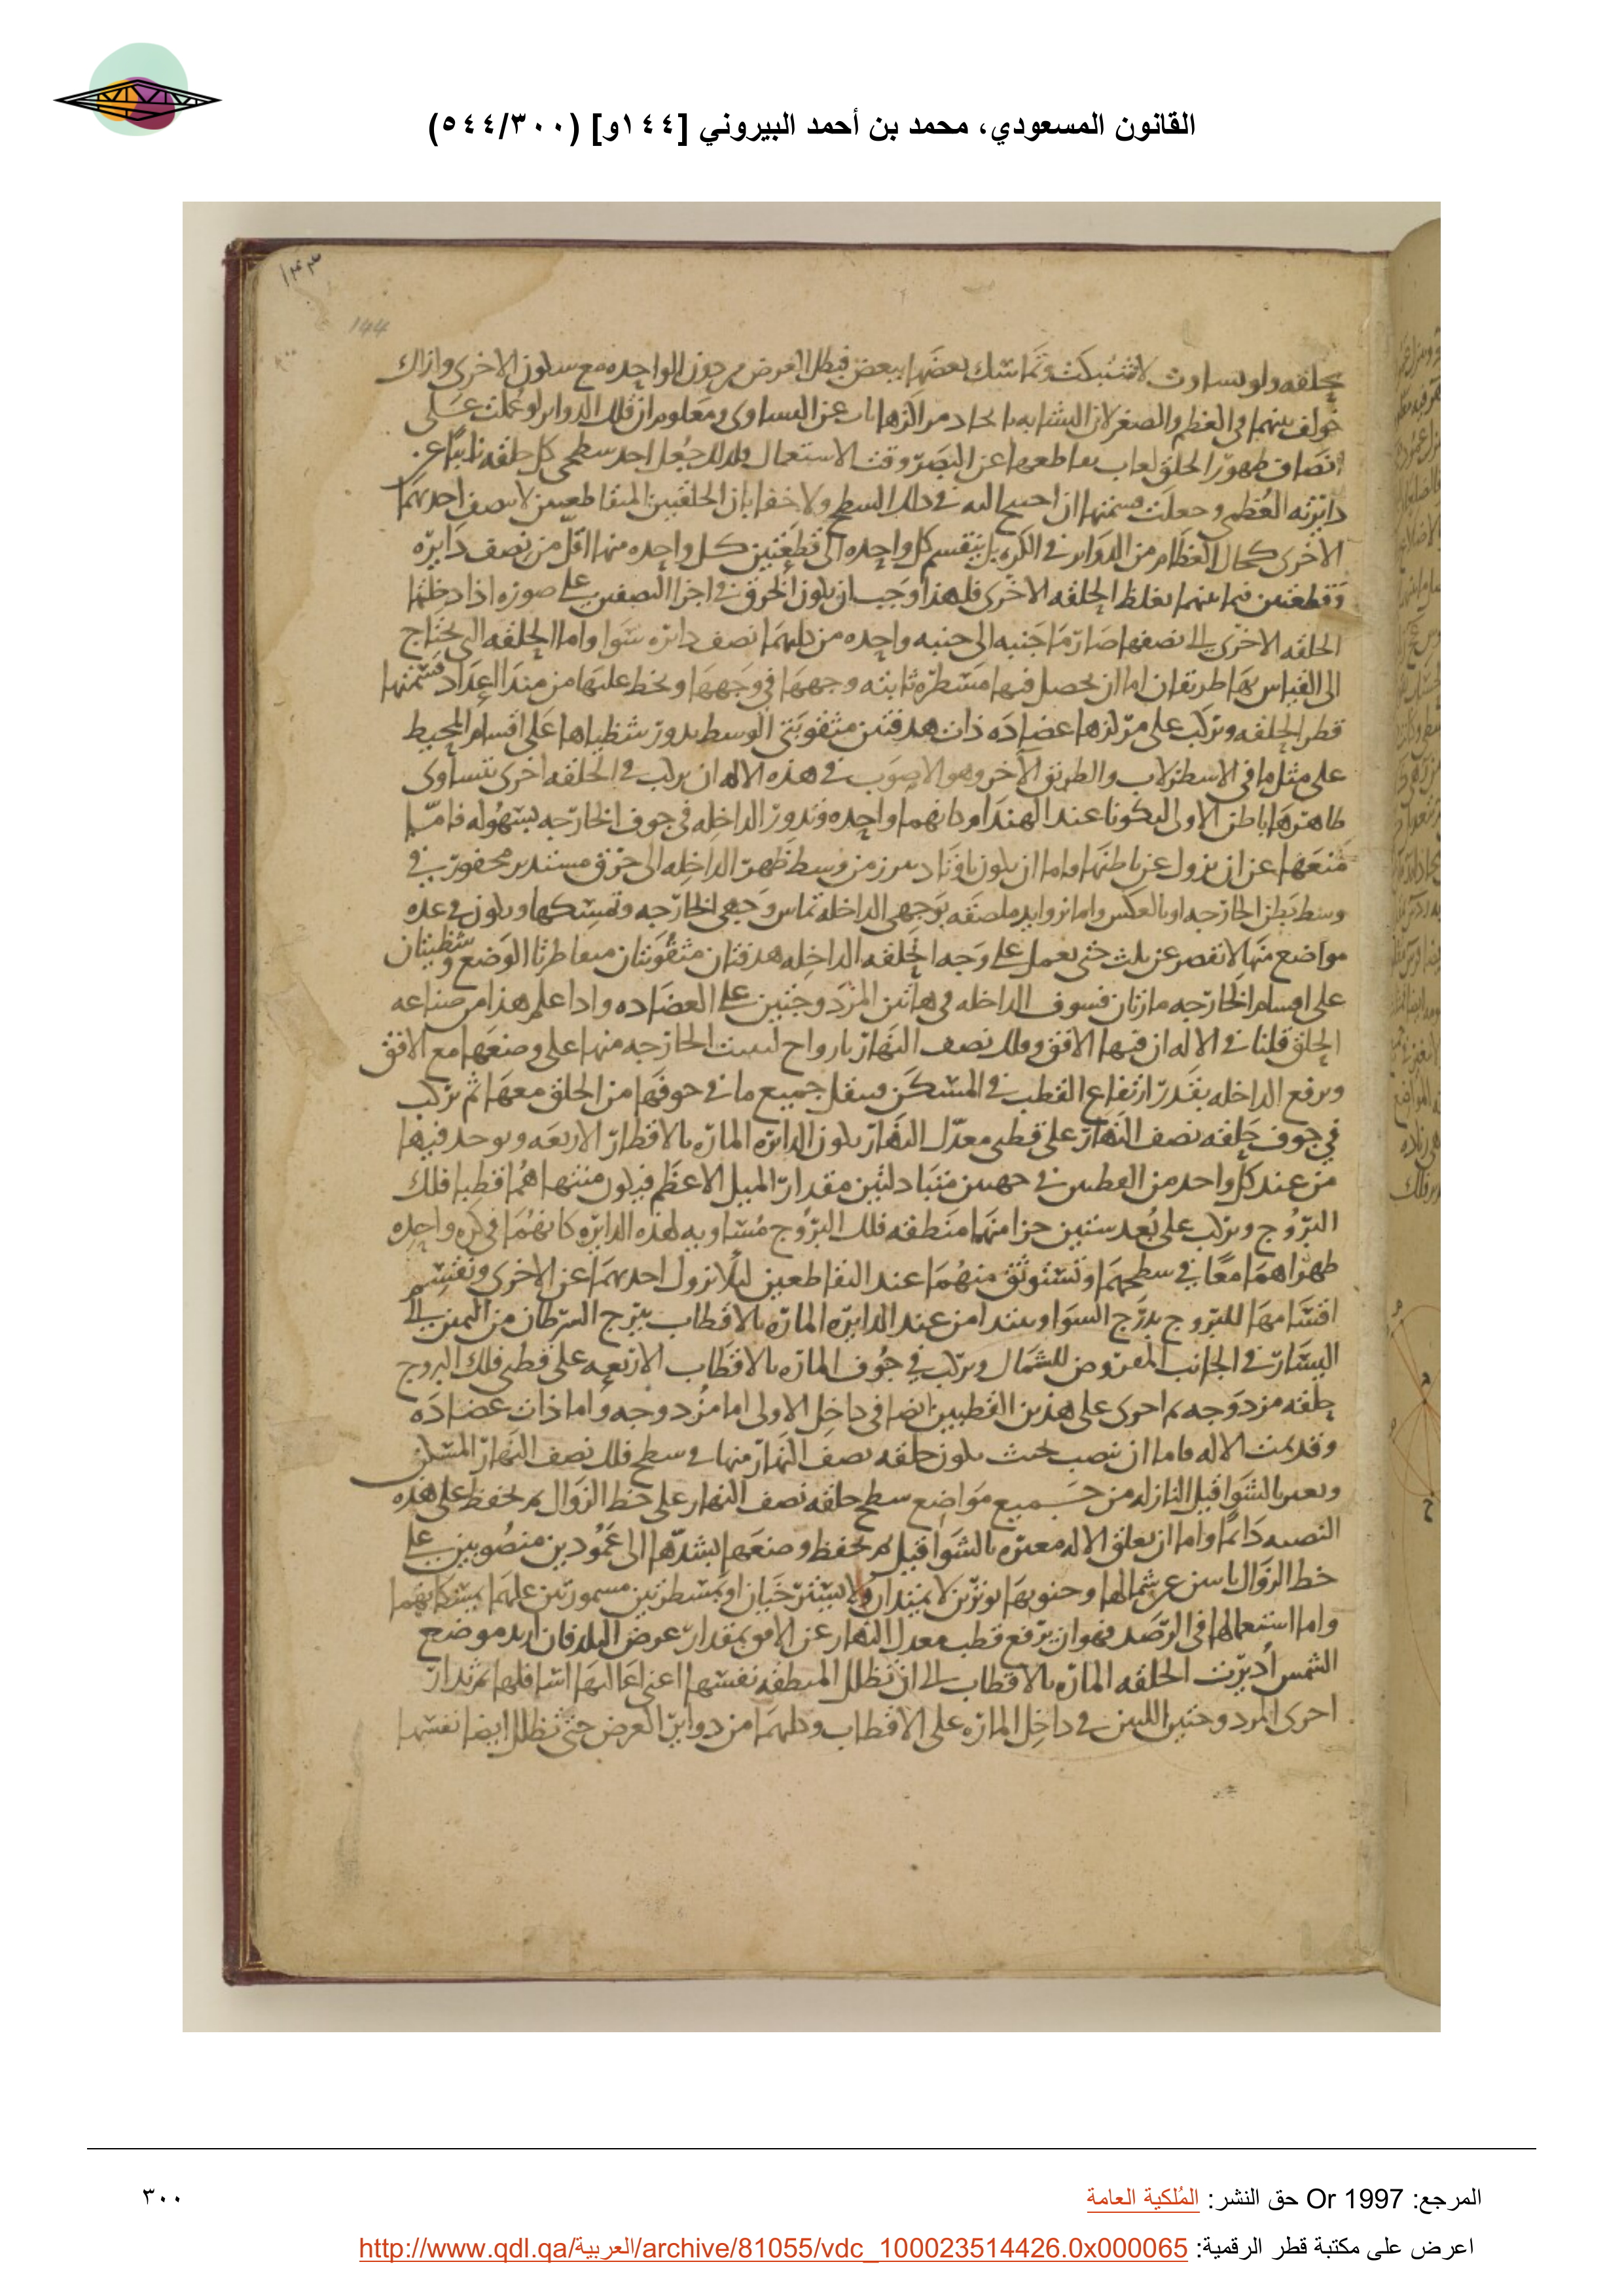 القانون المسعودي، محمد بن أحمد البيروني [١٤٤و] (٥٤٤/٣٠٠)
١٤٣
144
بحلقه ولو تساوت لاشتبكت وتماسك بعضها ببعض فبطل الغرض من دون الواحده مع سكون الاخرى وان اك
خولف بينهما في العظم والصغر لان التشابه باتحاد مراكزها ناب عن التساوى ومعلوم ان تلك الدواير لو عملت على
انصاف ظهور الحلق لغاب تقاطعها عن البصر وقت الاستعمال فلذلك جعل احد سطحى كل حلقه نايبا عن
دايرته العظمى وجعلت قسمتها ان احتيج اليه في ذلك السطح ولا خفا بان الحلقتين المتقاطعتين لا ينصف احديهما
الاخرى كحال العظام من الدواير في الكره بل ينقسم كل واحده الى قطعتين كل واحده منها اقل من نصف دايره
وقطعتين فيما بينهما بغلظ الحلقه الاخرى فلهذا وجب ان يكون الخرق في اجزا النصفين على صوره اذا دخلتها
الحلقه الاخرى الى نصفها صار ما جنبه الى جنبه واحده من كليهما نصف دايره سوا واما الحلقه التي يحتاج
الى القياس بها طريقان اما ان يحصل فيها مسطره ثابته وجهها في وجهها ويخط عليها من مبدا اعداد قسمتها
قطر الحلقه ويركب على مركزها عضاده ذات هدفتين مثقوبتى الوسط يدور شظياها على اقسام المحيط
على مثل ما في الاسطرلاب والطريق الاخر وهو الاصوب في هذه الاله ان يركب في الحلقه اخرى يتساوى
ظاهرها باطن الاولى ليكونا عند الهندام كانهما واحده وتدور الداخله في جوف الخارجه بسهوله فاما
منعها عن ان يزول عن باطنها فاما ان يكون باوتاد تبرز من وسط ظهر الداخله الى خرق مستدير محفور في
وسط بطن الخارجه او بالعكس واما بزوايد ملصقه بوجهى الداخله تماس وجهى الخارجه وتمسكها ويكون في عده
مواضع منها لا تقصر عن ثلث حتى يعمل على وجه الحلقه الداخله هدفتان مثقوبتان متقاطرتا الوضع وشظيتان
على اقسام الخارجه مارتان فسوف الداخله في هاتين المزدوجتين على العضاده واذا علم هذا من صناعه
الحلق قلنا في الاله ان فيها الافق وفلك نصف النهار بازواج ليثبت الخارجه منها على وضعها مع الافق
ويرفع الداخله بقدر ارتفاع القطب في المسكن وينقل جميع ما في جوفها من الحلق معها ثم يركب
في جوف حلقه نصف النهار على قطبى معدل النهار يكون الدايره الماره بالاقطاب الاربعه ويوخذ فيها
من عند كل واحد من القطبين في جهتين متبادلتين مقدار الميل الاعظم فيكون منتهاهما قطبا فلك
البروج ويركب على بعد ستين جزا منهما منطقه فلك البروج مساويه لهذه الدايره كانهما في كره واحده
ظهراهما معا في سطحهما وتستوثق منهما عند التقاطعين ليلا تزول احديهما عن الاخرى وتقسم
اقسامها للبروج بدرج السوا ويبتدا من عند الدايره الماره بالاقطاب ببرج السرطان من اليمين الى
اليسار في الجانب المفروض للشمال ويركب في جوف الماره بالاقطاب الاربعه على قطبى فلك البروج
حلقه مزدوجه ثم اخرى على هذين القطبين ايضا في داخل الاولى اما مزدوجه واما ذات عضاده
وقد تمت الاله فاما ان ينصب بحيث يكون حلقه نصف النهار منها في سطح فلك نصف النهار المسكن
ويعتبر بالشواقيل النازله من جميع مواضع سطح حلقه نصف النهار على خط الزوال ثم يحفظ على هذه
النصبه دايما واما ان يعلق الاله معتبره بالشواقيل ثم يحفظ وضعها بشدها الى عمودين منصوبين على
خط الزوال ثابتين عن شمالها وجنوبها بوترين لا يمتدان ولا يسترخيان او بمسطرتين مسمورتين عليهما يمسكانهما
واما استعمالها في الرصد فهو ان يرفع قطب معدل النهار عن الافق بمقدار عرض البلد فان اريد موضع
الشمس اديرت الحلقه الماره بالاقطاب الى ان تظلل المنطقه نفسها اعنى اعاليها اسافلها ثم تدار
احرى المزدوجتين اللتين في داخل الماره على الاقطاب وكليهما من دواير العرض حتى تظلل ايضا نفسها
المرجع: Or 1997 حق النشر: المُلكية العامة
٣٠٠
اعرض على مكتبة قطر الرقمية: http://www.qdl.qa/العربية/archive/81055/vdc_100023514426.0x000065